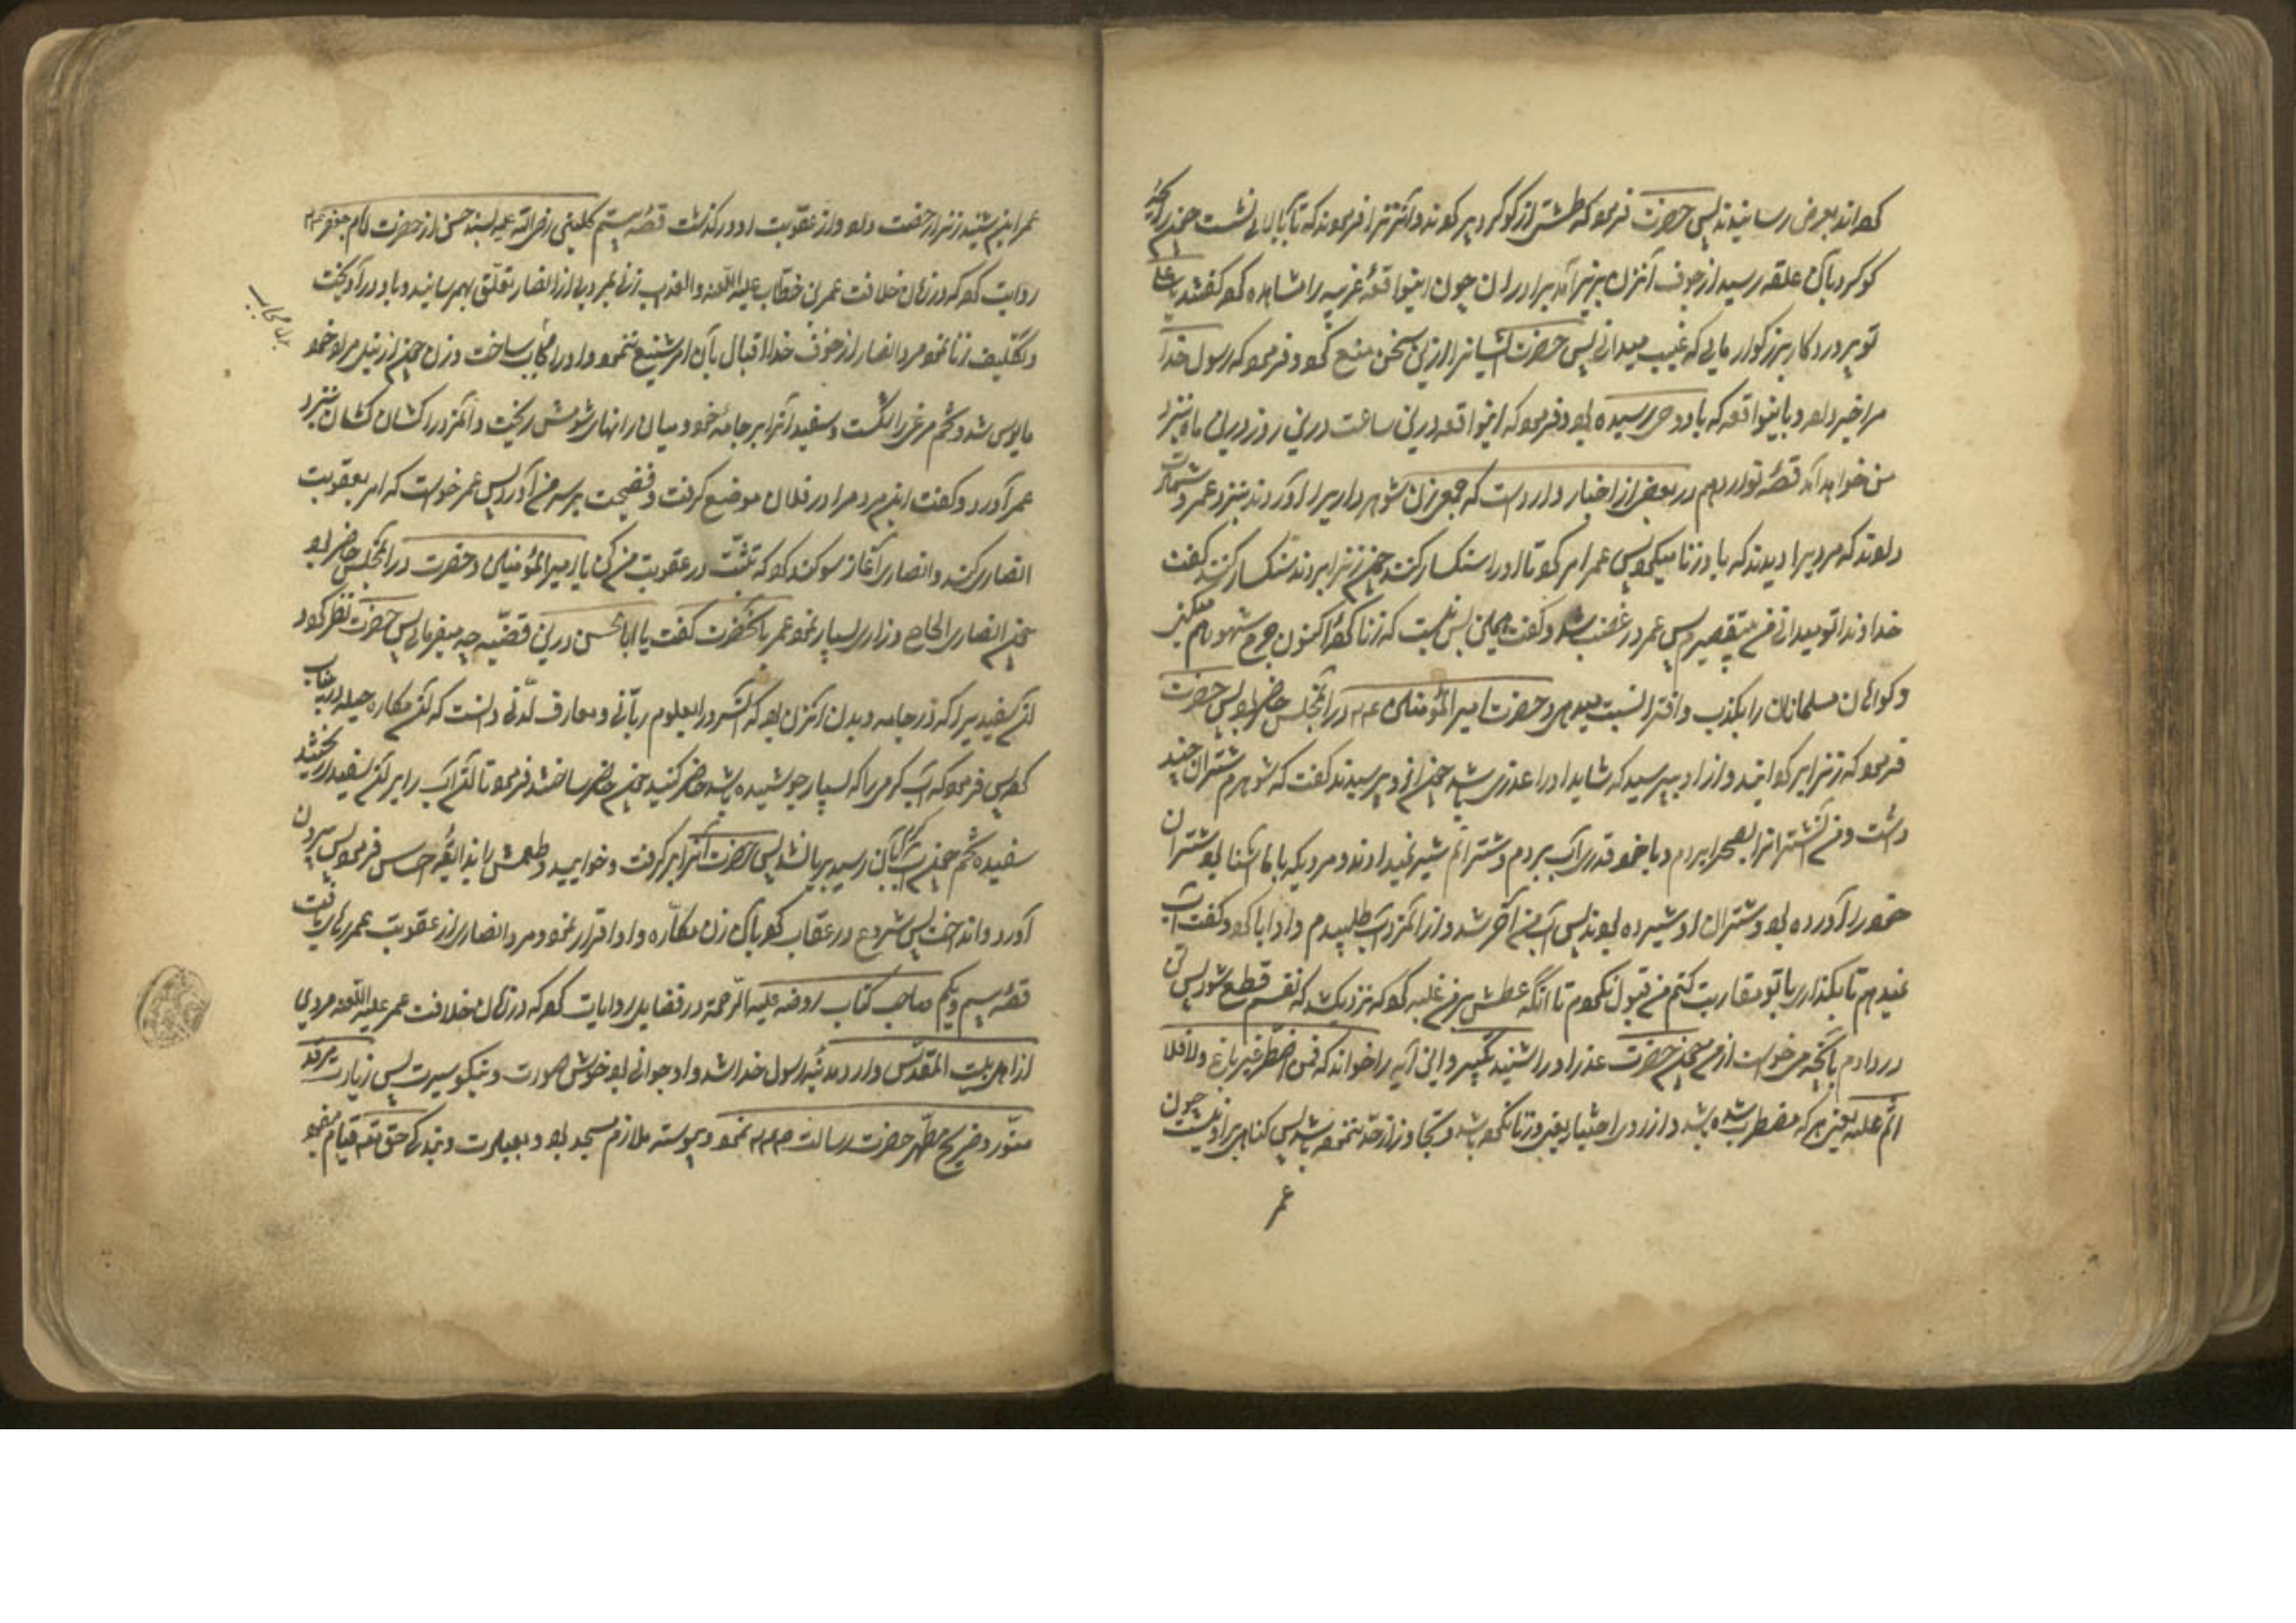 کرده‌اند بعرض رسانیدند پس حضرت فرمود که طشتی از کوکرد پر کردند و آنزنرا فرمودند که تا بالای نشست چون رایحهٔ
کوکرد بآن علقه رسید از جوف آنزن بزیر آمد برادران چون اینواقعهٔ غریبه را مشاهده کرد گفتند یا علی
تو پروردکار بزرکوار مایی که غیب میدانی پس حضرت ایشانرا ازین سخن منع کرد و فرمود که رسول خدا
مرا خبر داده بود باینواقعه که باو وحی رسیده بود و فرمود که اینواقعه درین ساعت درین روز درین ماه بنزد
من خواهد آمد قصهٔ نوزدهم در بعضی از اخبار وارد است که جمعی زن شوهرداریرا آوردند بنزد عمر و شهادت
دادند که مردیرا دیدند که با او زنا میکرد پس عمر امر کرد تا او را سنکسار کنند چون زنرا بردند سنکسار کنند گفت
خداوندا تو میدانی من بیتقصیرم پس عمر در غضب شد و گفت همین بس نیست که زنا کرد اکنون جرح شهود هم میکنی
و کواهان مسلمانان را بکذب و افترا نسبت میدهی و حضرت امیر المؤمنین ع م در آنمجلس حاضر بود پس حضرت
فرمود که زنرا برکردانید و از او بپرسید که شاید او را عذری باشد چون از وی پرسیدند گفت که شوهرم شتران چند
داشت و من آنشترانرا بصحرا بردم و با خود قدری آب بردم و شترانم شیر نمیدادند و مردیکه با ما آشنا بود شتران
خود را آورده بود و شتران او شیرده بودند پس آب من آخر شد و از آنمرد آب طلبیدم و او ابا کرد و گفت آب
نمیدهم تا بگذاری با تو مقاربت کنم من قبول نکردم تا آنکه عطش بر من غلبه کرد که نزدیک شد که نفسم قطع شود پس تن
در دادم بآنچه میخواست از من چون حضرت عذر او را شنید تکبیر و این آیه را خواند که فمن اضطر غیر باغ ولا عاد فلا
اثم علیه یعنی هر که مضطر شده باشد و از روی اختیار بغی و زنا نکرده باشد و تجاوز از حد ننموده باشد پس کناه بر او نیست چون
عمر
عمر این شنید زنرا رخصت داد و از عقوبت او درکذشت قصهٔ بیستم کلینی رضی الله علیه بسند حسن از حضرت امام جعفر ع م
روایت کرد که در زمان خلافت عمر بن خطاب علیه اللعنه والعذاب زنی بمردی از انصار تعلق بهم رسانید و باو درآویخت
و تکلیف زنا نمود مرد انصار از خوف خدا اقبال بآن امر شنیع ننمود و او را مجاب ساخت و زن چون از نیل مراد خود
مایوس شد و تخم مرغی را شکست و سفیدی آنرا بر جامهٔ خود و میان رانهای خویش ریخت و آنمرد را کشان کشان بنزد
عمر آورد و گفت این مرد مرا در فلان موضع کرفت و فضیحت بر سر من آورد پس عمر خواست که امر بعقوبت
انصاری کند و انصاری آغاز سوکند کرد که تثبت در عقوبت من کن یا امیر المؤمنین و حضرت در آنمجلس حاضر بود
چون انصاری الحاح و زاری بسیار نمود عمر بآنحضرت گفت یا ابا الحسن درین قضیه چه میفرمائی پس حضرت نظر کرد در
آن سفیدی که در جامه و بدن آنزن بود که آنسرور بعلوم ربانی و معارف لدنی دانست که آن مکاره حیله در
کرده پس فرمود که آب کرمی را که بسیار جوشیده باشد حاضر کنید چون حاضر ساختند فرمود تا آن آب را بر آن سفیدی ریختند
سفیده تخم چون آب بآن رسید بریان شد پس حضرت آنرا برکرفت و خوایید و طعمش را بذایقهٔ احساس فرمود پس بیرون
آورد و انداخت پس شروع در عقاب کرد بآن زن مکاره و او اقرار نمود و مرد انصاری از عقوبت عمر رهایی یافت
قصهٔ بیست و یکم صاحب کتاب روضه علیه الرحمة در فضایل روایات کرد که در زمان خلافت عمر علیه اللعنه مردی
از اهل بیت المقدس وارد مدینهٔ رسول خدا شد و او جوانی بود خوش صورت و نیکو سیرت پس زیارت مرقد
منور و ضریح مطهر حضرت رسالت ص م نمود و پیوسته ملازم مسجد بود و بعبادت و بندکی حق تعه قیام مینمود